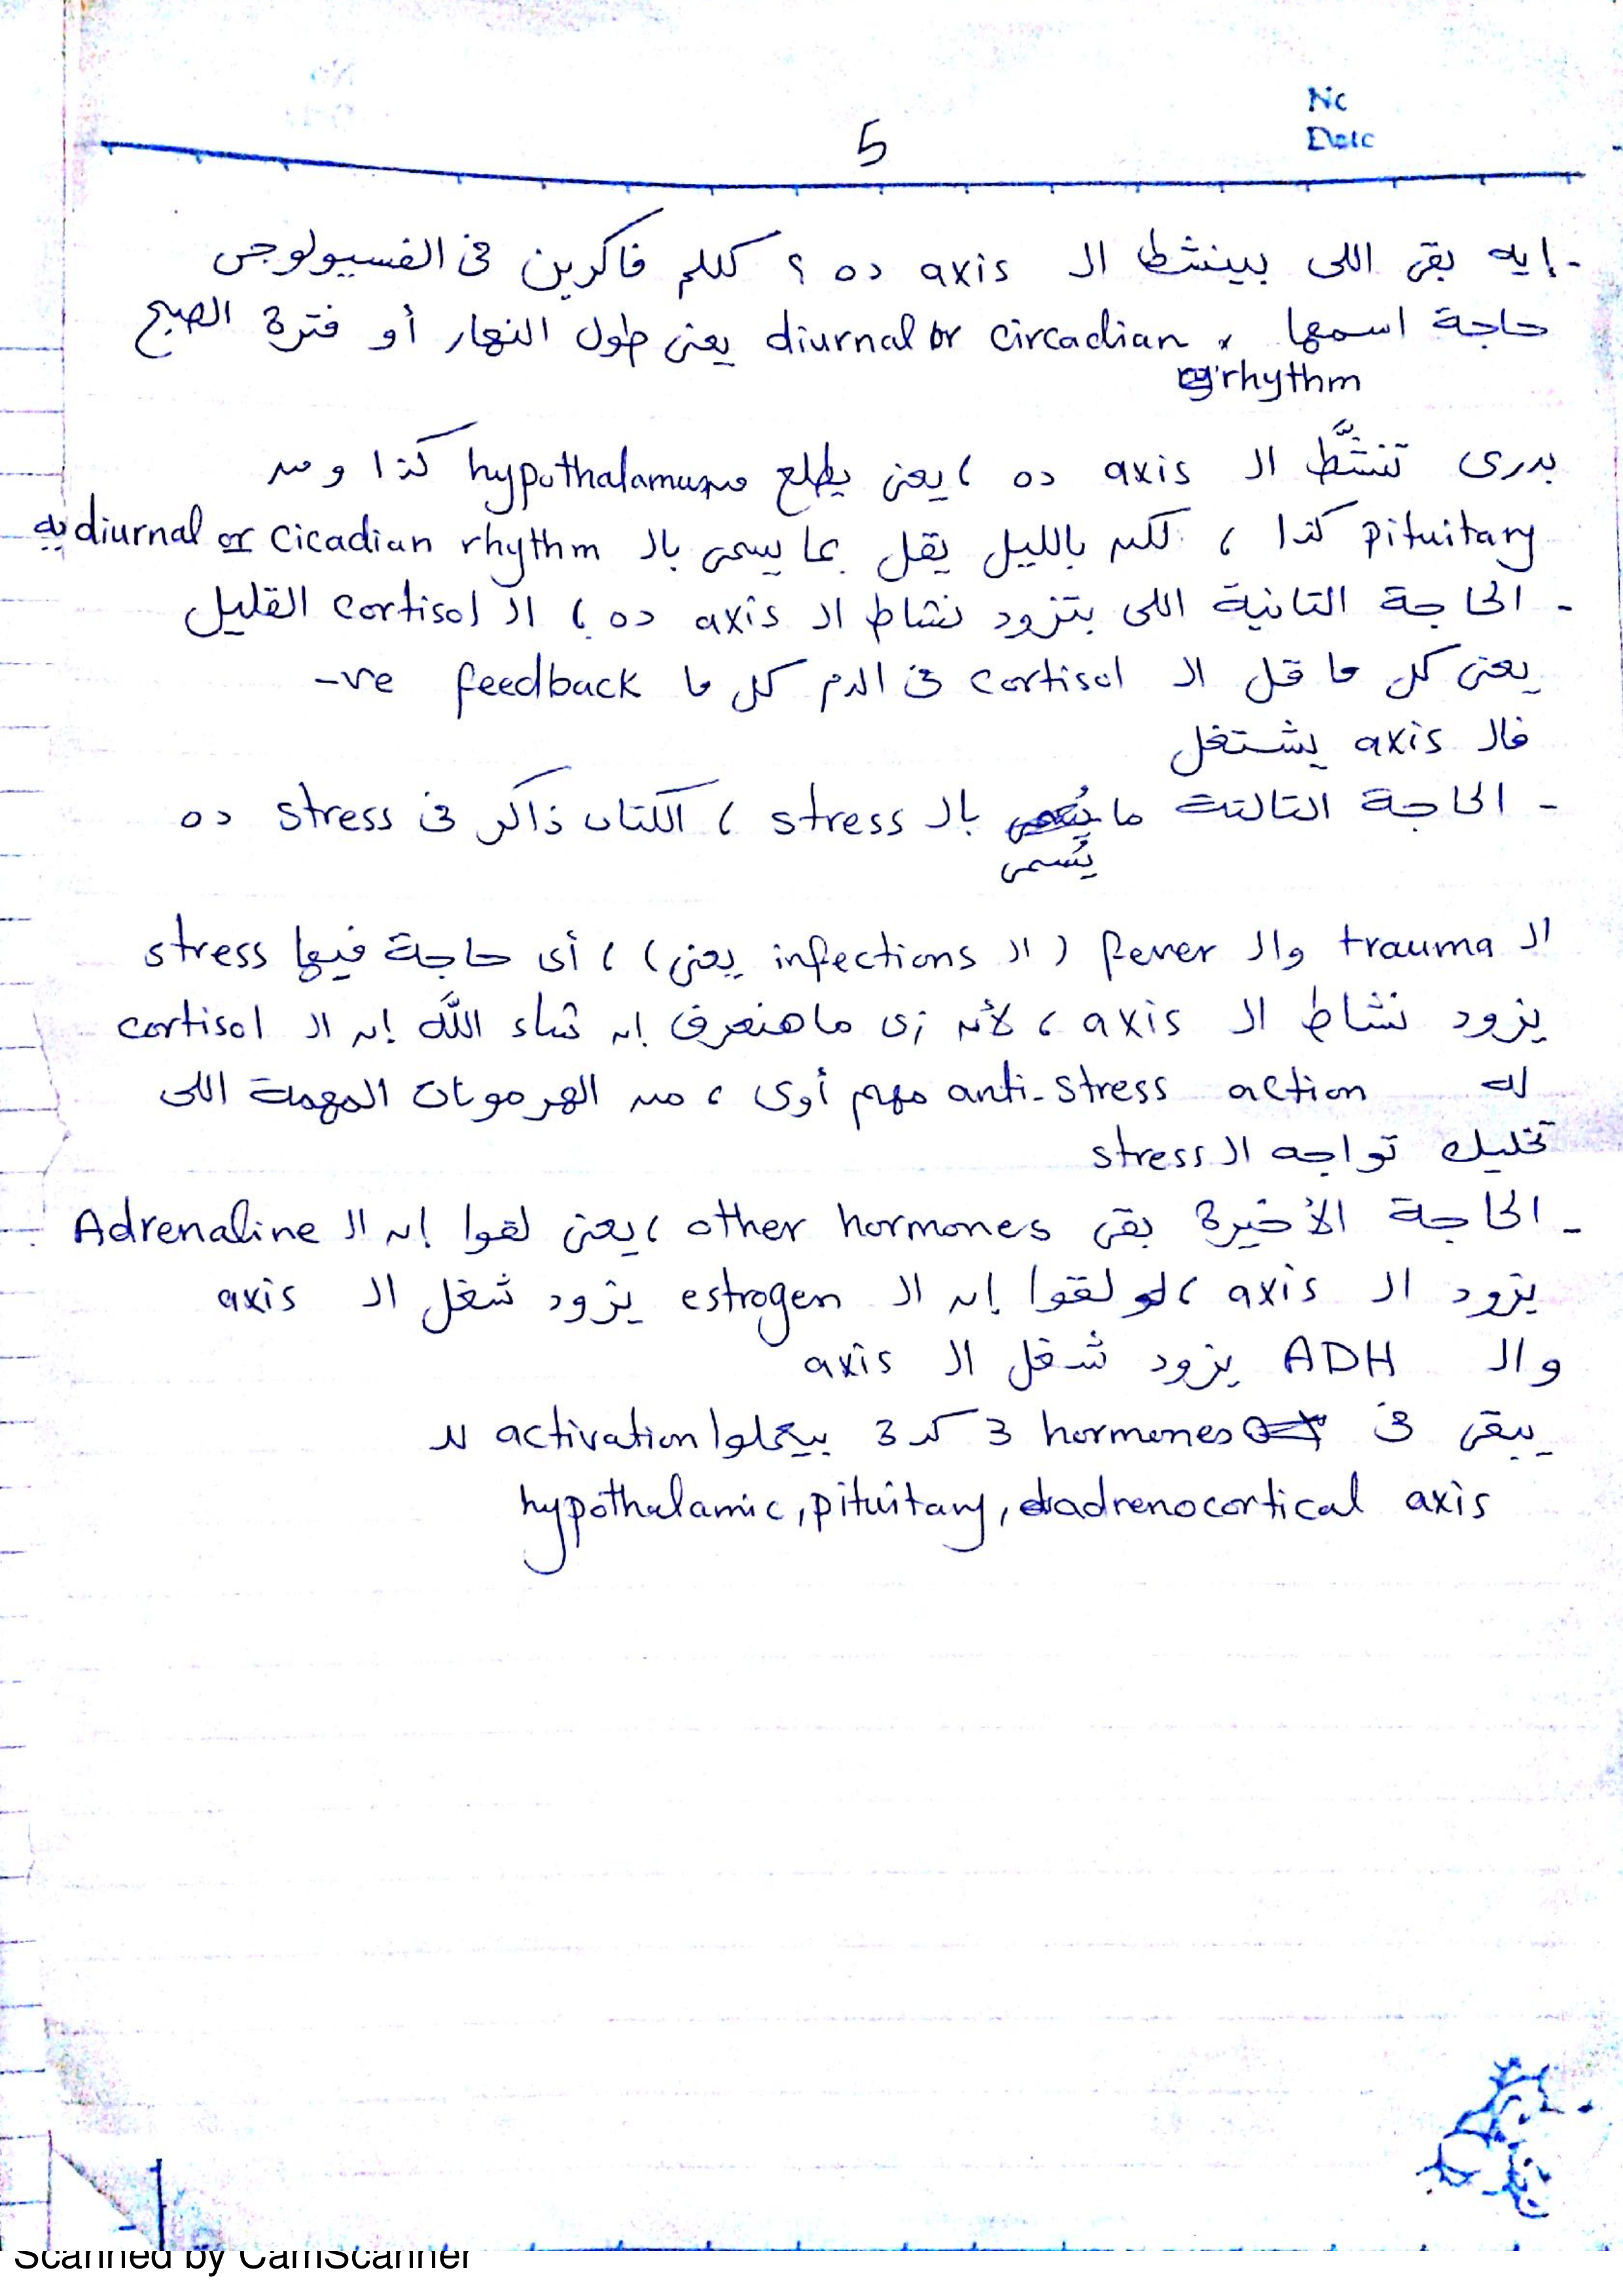 No
Date
5
- إيه بقى اللى بينشط الـ axis ده ؟ كلكم فاكرين فى الفسيولوجى
حاجة اسمها diurnal or circadian يعنى طول النهار أو فترة الصبح
rhythm
بدرى تنشَّط الـ axis ده ، يعنى يطلع من hypothalamus كذا و من
pituitary كذا ، لكن بالليل يقل بما يسمى بالـ diurnal or cicadian rhythm
- الحاجة التانية اللى بتزود نشاط الـ axis ده ، الـ cortisol القليل
يعنى كل ما قل الـ cortisol فى الدم كل ما feedback -ve
فالـ axis يشتغل
- الحاجة التالتة ما بالـ stress ، الكتاب ذاكر فى stress ده
يُسمى
الـ trauma والـ fever ( الـ infections يعنى ) ، أى حاجة فيها stress
يزود نشاط الـ axis ، لأنه زى ما هنعرف إن شاء الله إن الـ cortisol
له anti-stress action مهم أوى ، من الهرمونات المهمة اللى
تخليك تواجه الـ stress
- الحاجة الأخيرة بقى other hormones ، يعنى لقوا إن الـ Adrenaline
يزود الـ axis ، لقوا إن الـ estrogen يزود شغل الـ axis
والـ ADH يزود شغل الـ axis
يبقى فى 3 hormones كـ 3 بيعملوا activation للـ
hypothalamic, pituitary, adrenocortical axis
Scanned by CamScanner